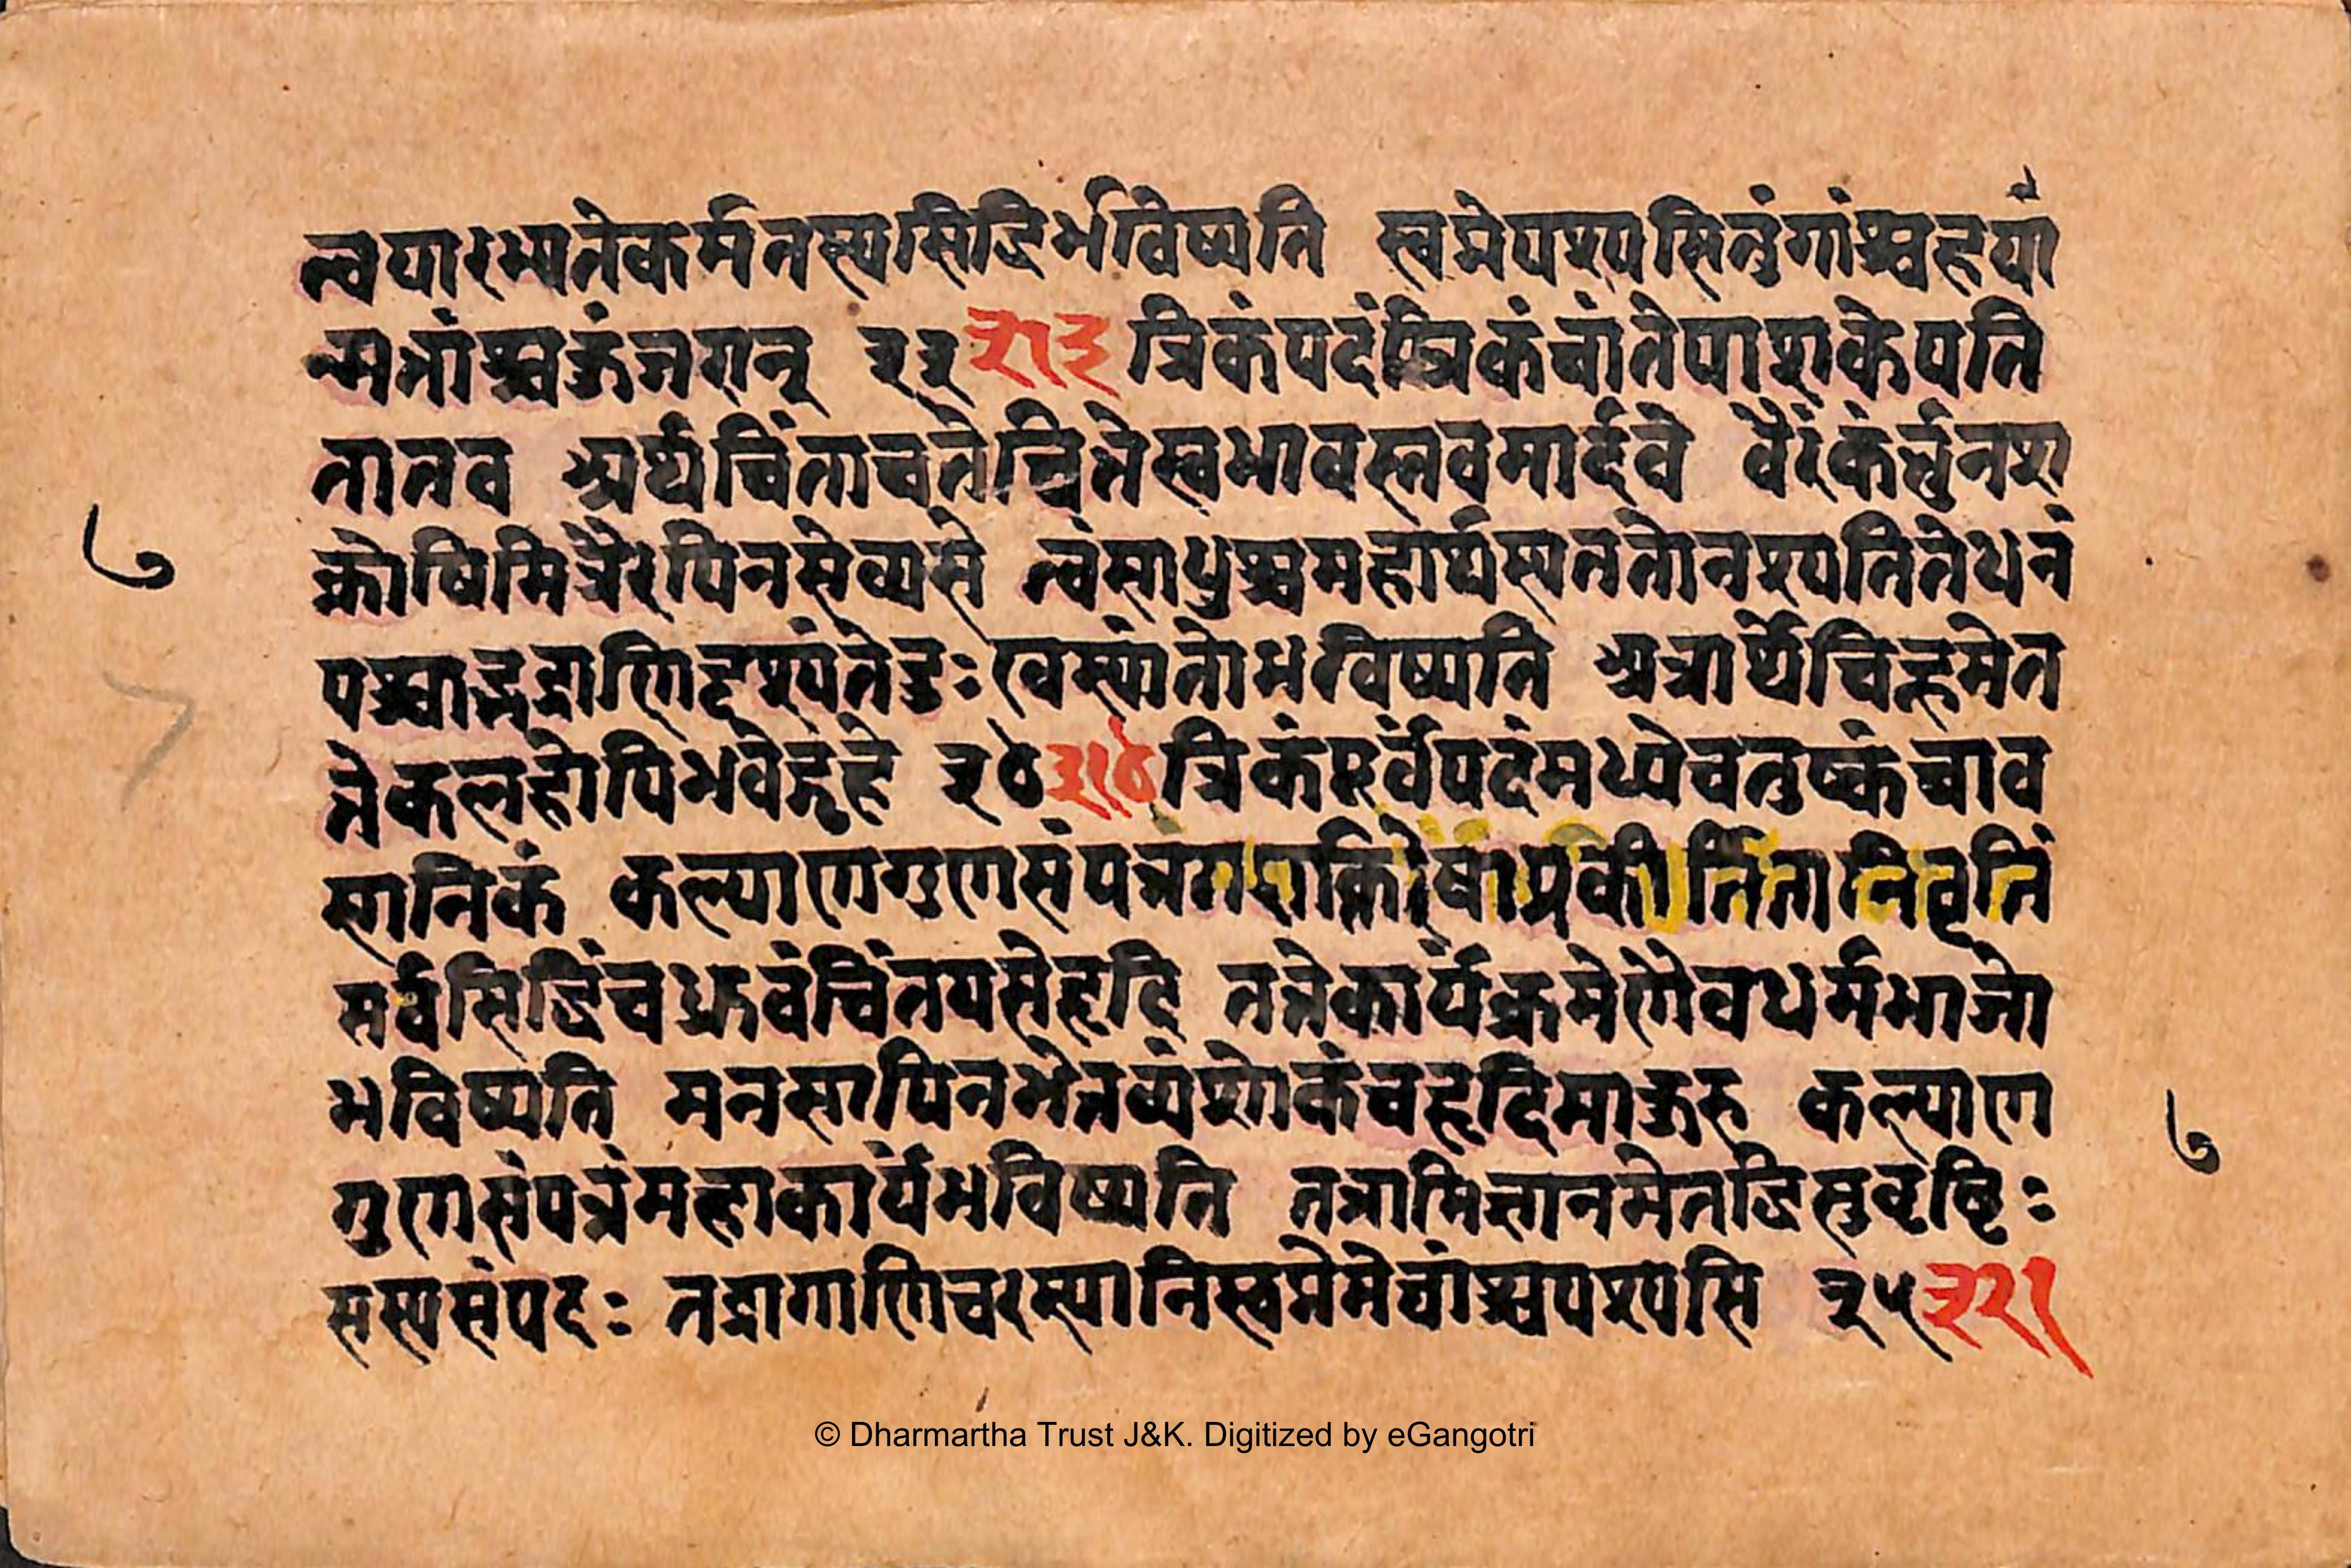 त्वयारभ्यतेकर्मतस्यसिद्धिर्भविष्यति स्वप्नेपश्यसितुंगांश्चहर्या
न्मत्तांश्चकुंजरान् ३३ ३।३ त्रिकंपदंत्रिकंचांतेपाशकेपति
तातव अर्थचिंताचतेचित्तेस्वभावस्तवमार्दवे वैरंकर्त्तुनश
क्तोषिमित्रैरपिनसेव्यसे त्वंसाधुश्चमहार्थस्यततोनश्यतितेधनं
पश्चाद्भद्राणिदृश्यंतेदुःखस्यांतोभविष्यति अत्रार्थेचिह्नमेत
त्तेकलहोपिभवेद्गृहे ३४ ३।४ त्रिकंपूर्वंपदंमध्येचतुष्कंचाव
सानिकं कल्याणगुणसंपन्न
सर्वसिद्धिंचध्रुवंचिंतयसेहृदि तत्तेकार्यंक्रमेणैवधर्मभाजो
भविष्यति मनसापिनभेतव्यंशोकंचहृदिमाकुरु कल्याण
गुणसंपन्नंमहाकार्यंभविष्यति तत्राभिज्ञानमेतद्धिसुवृष्टिः
सस्यसंपदः तडागाणिचरम्यानिस्वप्नेमेघांश्चपश्यसि ३५ ३२१
७
७
© Dharmartha Trust J&K. Digitized by eGangotri